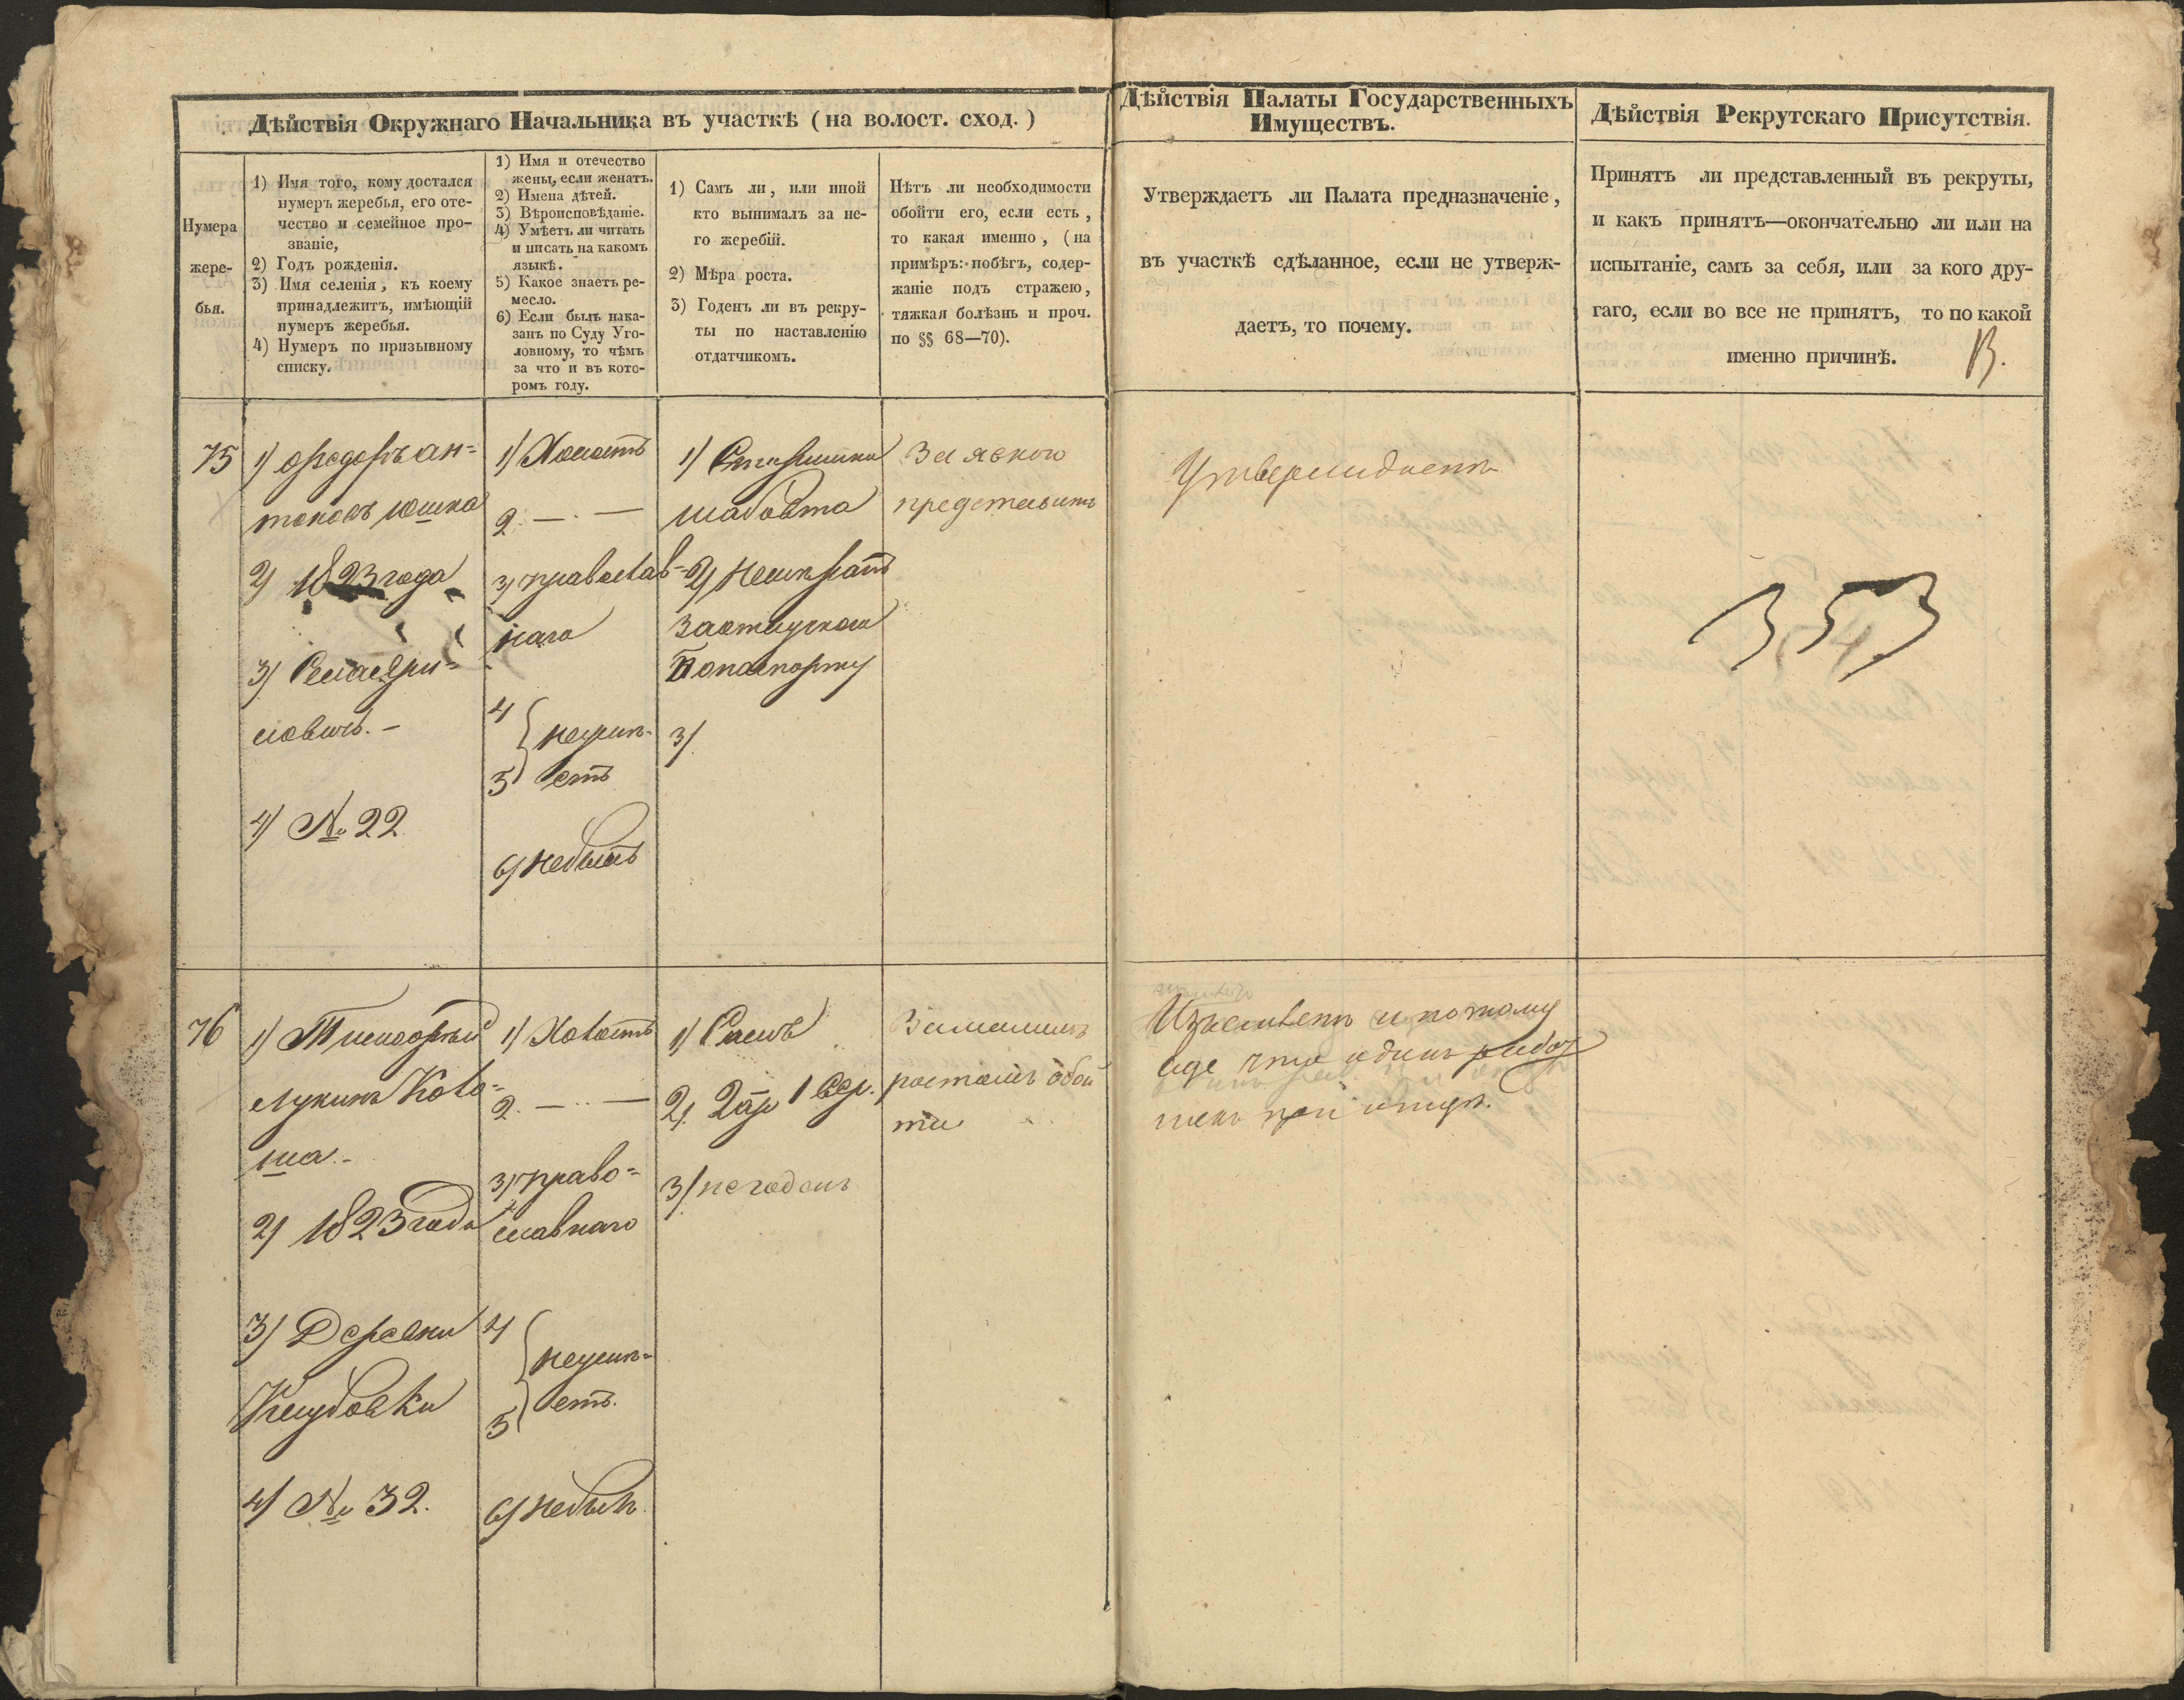 Дѣйствія Окружнаго Начальника въ участкѣ (на волост. сход.)
Нумера
жере-
бья.
1) Имя того, кому достался
нумеръ жеребья, его оте-
чество и семейное про-
званіе,
2) Годъ рожденія.
3) Имя селенія, къ коему
принадлежитъ, имѣющій
нумеръ жеребья.
4) Нумеръ по призывному
списку.
1) Имя и отечество
жены, если женатъ.
2) Имена дѣтей.
3) Вѣроисповѣданіе.
4) Умѣетъ ли читать
и писать на какомъ
языкѣ.
5) Какое знаетъ ре-
месло.
6) Если былъ нака-
занъ по Суду Уго-
ловному, то чѣмъ
за что и въ кото-
ромъ году.
1) Самъ ли, или иной
кто вынималъ за не-
го жеребій.
2) Мѣра роста.
3) Годенъ ли въ рекру-
ты по наставленію
отдатчикомъ.
Нѣтъ ли необходимости
обойти его, если есть,
то какая именно, (на
примѣръ: побѣгъ, содер-
жаніе подъ стражею,
тяжкая болѣзнь и проч.
по §§ 68—70).
Дѣйствія Палаты Государственныхъ
Имуществъ.
Утверждаетъ ли Палата предназначеніе,
въ участкѣ сдѣланное, если не утверж-
даетъ, то почему.
Дѣйствія Рекрутскаго Присутствія.
Принятъ ли представленный въ рекруты,
и какъ принятъ—окончательно ли или на
испытаніе, самъ за себя, или за кого дру-
гаго, если во все не принятъ, то по какой
именно причинѣ.
75
1) Федоръ Ан=
тоновъ Юшко
2) 1823 года
3)
4) № 22
1) Холостъ
2. — . —
3) православ=
наго
4
5 } неумѣ-
етъ
6) небылъ
1) Старшина
2) неигралъ
3)
За явкою
представить
Утверждаетъ
353
76
1) Тимофей
Лукинъ
2) 1823 года
3) Деревни
4) № 32.
1) Холостъ
2. — .. —
3) право=
славнаго
4
5 } неумѣ=
етъ.
6) небылъ.
1) Самъ
2) 2 ар 1 вер.
3) негоденъ
За малымъ
ростомъ обой
ти
еще что одинъ работ
никъ при отцѣ.